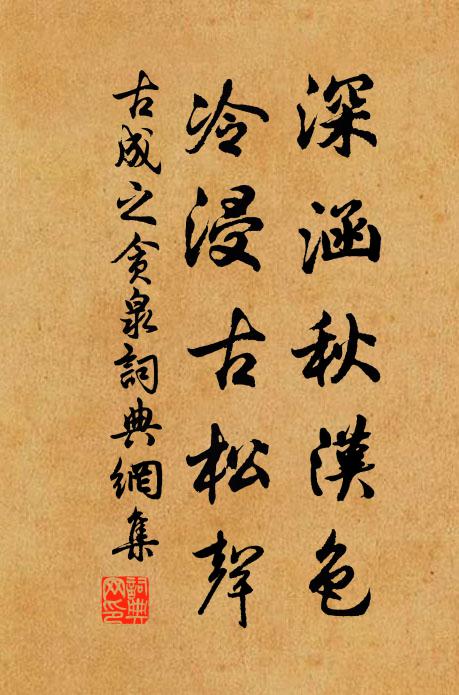 深涵秋漢色
冷浸古松聲
古成之貪泉詞典網集
詞典网印